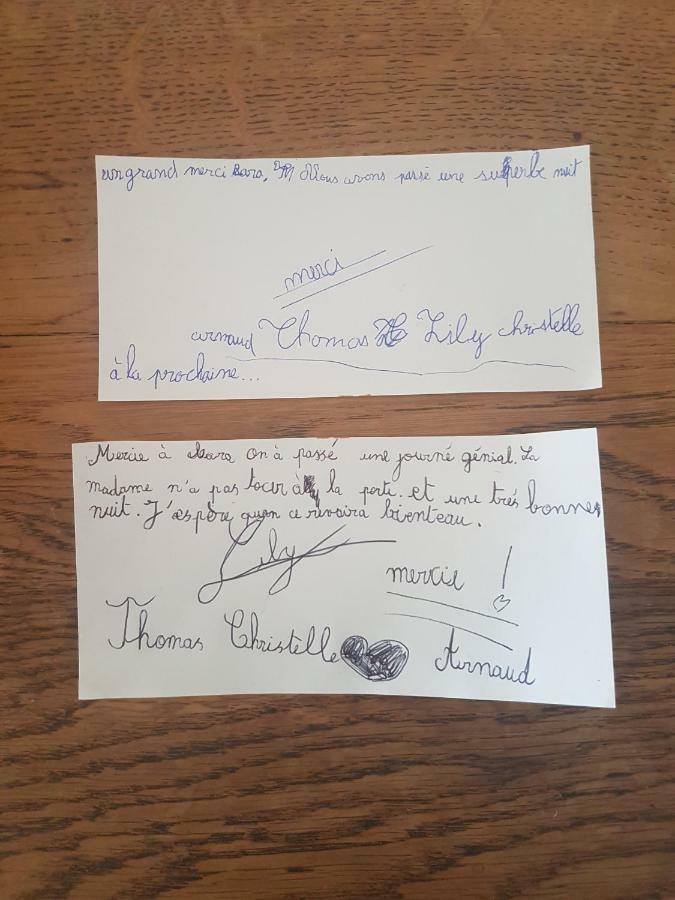 un grand merci Bara, Nous avons passé une superbe nuit
merci
arnaud Thomas Lily christelle
à la prochaine...
Mercie à Bara on à passé une journé génial. La
madame n'a pas tocer à la porte. et une très bonnes
nuit. J'æspère quon ce revoira bienteau.
Lily
mercie !
Thomas Christelle Arnaud